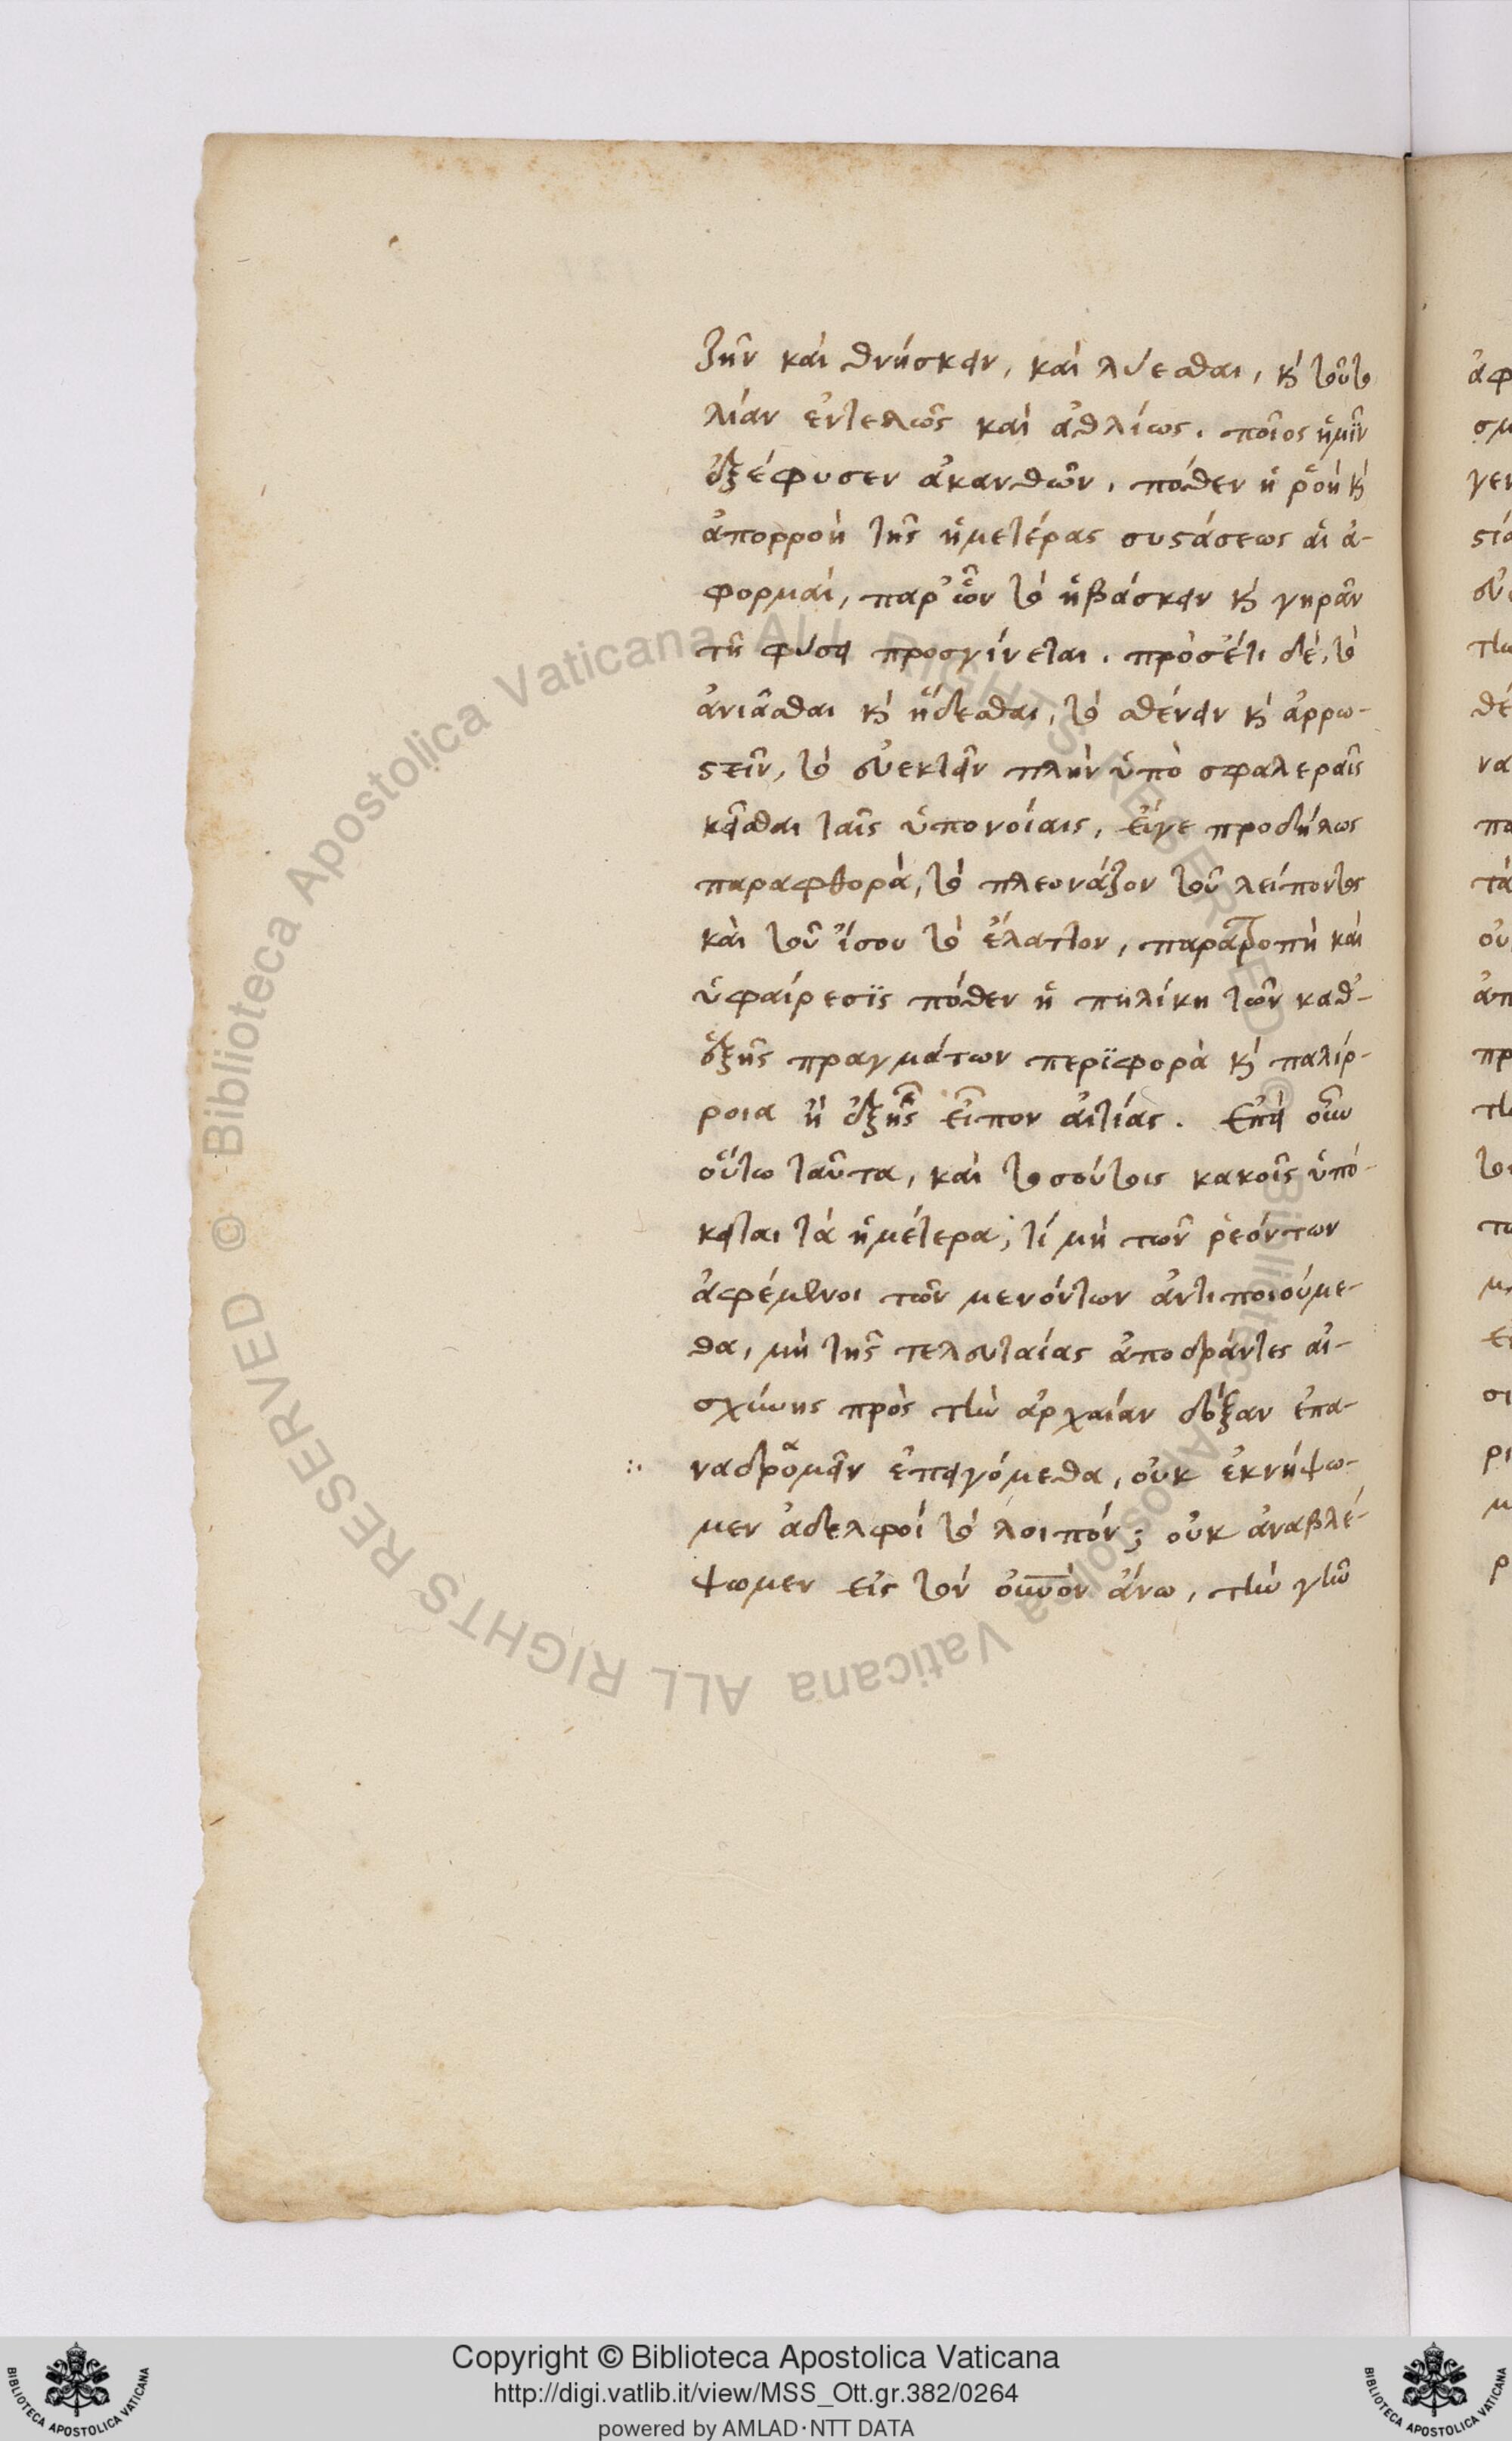 ζῆν καὶ θνήσκειν, καὶ λύεσθαι, κ̀ τοῦτο
λίαν ἐντελῶς καὶ ἀθλίως. ποῖος ἡμῖν
ἐξέφυσεν ἀκανθῶν. πόθεν ἡ ῥοὴ κ̀
ἀπορροὴ τῆς ἡμετέρας συστάσεως αἱ ἀ-
φορμαί, παρ' ὧν τὸ ἡβάσκειν κ̀ γηρᾶν
τῇ φύσει προσγίνεται. πρόσέτι δέ, τὸ
ἀνιᾶσθαι κ̀ ἥδεσθαι, τὸ σθένειν κ̀ ἀρρω-
στεῖν, τὸ συνεκτεῖν πλὴν ὑπὸ σφαλεραῖς
κεῖσθαι ταῖς ὑπονοίαις, εἴγε προδήλως
παραφθορὰ, τὸ πλεονάζον τοῦ λείποντος
καὶ τοῦ ἴσου τὸ ἔλαττον, παρατροπὴ καὶ
ὑφαίρεσϊς πόθεν ἡ πηλίκη τῶν καθ'-
ἑξῆς πραγμάτων περϊφορὰ κ̀ παλίρ-
ροια ἢ ἐξ ἧς εἶπον αἰτίας. Ἐπεὶ οὖν
οὕτω ταῦτα, καὶ τοσούτοις κακοῖς ὑπό-
κειται τὰ ἡμέτερα, τί μὴ τῶν ῥεόντων
ἀφέμενοι τῶν μενόντων ἀντιποιούμε-
θα, μὴ τῆς τελευταίας ἀποδράντες αἰ-
σχύνης πρὸς τὴν ἀρχαίαν δόξαν ἐπα-
ναδραμεῖν ἐπειγόμεθα, οὐκ ἐκνήψω-
μεν ἀδελφοί τὸ λοιπόν; οὐκ ἀναβλέ-
ψωμεν εἰς τὸν οὐνὸν ἄνω, τὴν γῆν
Copyright © Biblioteca Apostolica Vaticana
http://digi.vatlib.it/view/MSS_Ott.gr.382/0264
powered by AMLAD·NTT DATA